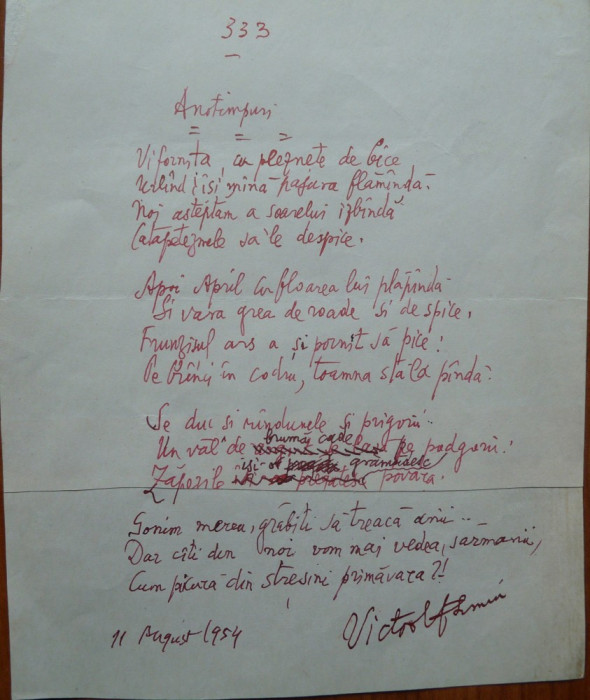 333
Anotimpuri
Viforniţa cu pleznete de bice
Urlînd îşi mînă pajura flămîndă.
Noi aşteptam a soarelui izbîndă
Catapeteznele să le despice.
Apoi April cu floarea lui plăpîndă
Si vara grea de roade si de spice.
Frunzişul ars a şi pornit să pice!
Pe brînci în codru, toamna stă la pîndă.
Se duc si rîndunele şi prigorii..
Un văl de brumă cade pe podgorii!
Zăpezile îşi grămădesc povara.
Gonim mereu, grăbiti să treacă anii..
Dar cîti din noi vom mai vedea, sarmanii,
Cum picură din streşini primăvara?!
11 August 1954
Victor Eftimiu